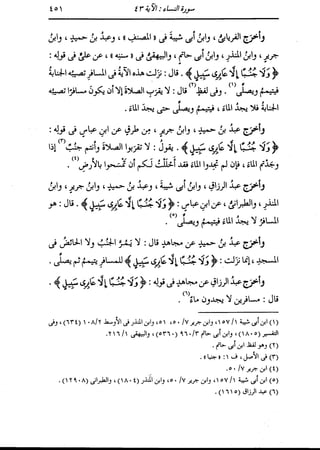 سورة النساء : الآية ٤٣
٤٥١
وأخرج الفريابى ، وابن أبى شيبة فى « المصنف » ، وعبد بن حميد ، وابن
جرير ، وابن المنذر ، وابن أبى حاتم ، والبيهقى فى « سننه » ، عن على فى قوله :
﴿ وَلَا جُنُبًا إِلَّا عَابِرِى سَبِيلٍ ﴾ . قال : نزلت هذه الآية فى المسافر تصيبه الجنابة
فيتيمم ويصلى (١) . وفى لفظ (٢) قال : لا يقرب الصلاة إلا أن يكون مسافرا تصيبه
الجنابة فلا يجد الماء ، فيتيمم ويصلى حتى يجد الماء .
وأخرج عبد بن حميد ، وابن جرير ، من طرق عن ابن عباس فى قوله :
﴿ وَلَا جُنُبًا إِلَّا عَابِرِى سَبِيلٍ ﴾ . يقول : لا تقربوا الصلاة وأنتم جنب (٣) إذا
وجدتم الماء ، فإن لم تجدوا الماء فقد أحللت لكم أن تمسحوا بالأرض (٤) .
وأخرج عبد الرزاق ، وابن أبى شيبة ، وعبد بن حميد ، وابن جرير ، وابن
المنذر ، والطبرانى ، عن ابن عباس : ﴿ وَلَا جُنُبًا إِلَّا عَابِرِى سَبِيلٍ ﴾ . قال : هو
المسافر لا يجد الماء فيتيمم ويصلى (٥) .
وأخرج عبد بن حميد عن مجاهد قال : لا يمر الجنب ولا الحائض فى
المسجد ، إنما نزلت : ﴿ وَلَا جُنُبًا إِلَّا عَابِرِى سَبِيلٍ ﴾ للمسافر يتيمم ثم يصلى .
وأخرج عبد الرزاق عن مجاهد فى قوله : ﴿ وَلَا جُنُبًا إِلَّا عَابِرِى سَبِيلٍ ﴾ .
قال : مسافرين لا يجدون ماء (٦) .
(١) ابن أبى شيبة ١/ ١٥٧، وابن جرير ٧/ ٥٠، ٥١، وابن المنذر فى الأوسط ٢/ ١٠٨ (٦٣٤) ، وفى
التفسير (١٨٠٥) ، وابن أبى حاتم ٣/ ٩٦٠ (٥٣٦٠) ، والبيهقى ١/ ٢١٦.
(٢) وهو لفظ ابن أبى حاتم .
(٣) فى الأصل ، ف ١: « جنبا » .
(٤) ابن جرير ٧/ ٥٠.
(٥) ابن أبى شيبة ١/ ١٥٧، وابن جرير ٧/ ٥٠، وابن المنذر (١٨٠٤) ، والطبرانى (١٢٩٠٨) .
(٦) عبد الرزاق (١٦١٥) .